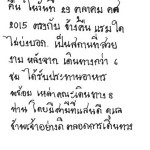 คืน ในวันที่ 29 ตุลาคม คศ
2015 ตรงกับ ข้างขึ้น แรมใด
ไม่บ่งบอก. เป็นสถานที่สวย
งาม หลังจาก เดินทางกว่า 6
ชม ได้รับประทานอาหาร
พร้อม เหล่าคณะเดินทาง 8
ท่าน โดยมีท่านที่แสนดี ดูแล
ข้าพเจ้าอย่างดี ตลอดการเดินทาง